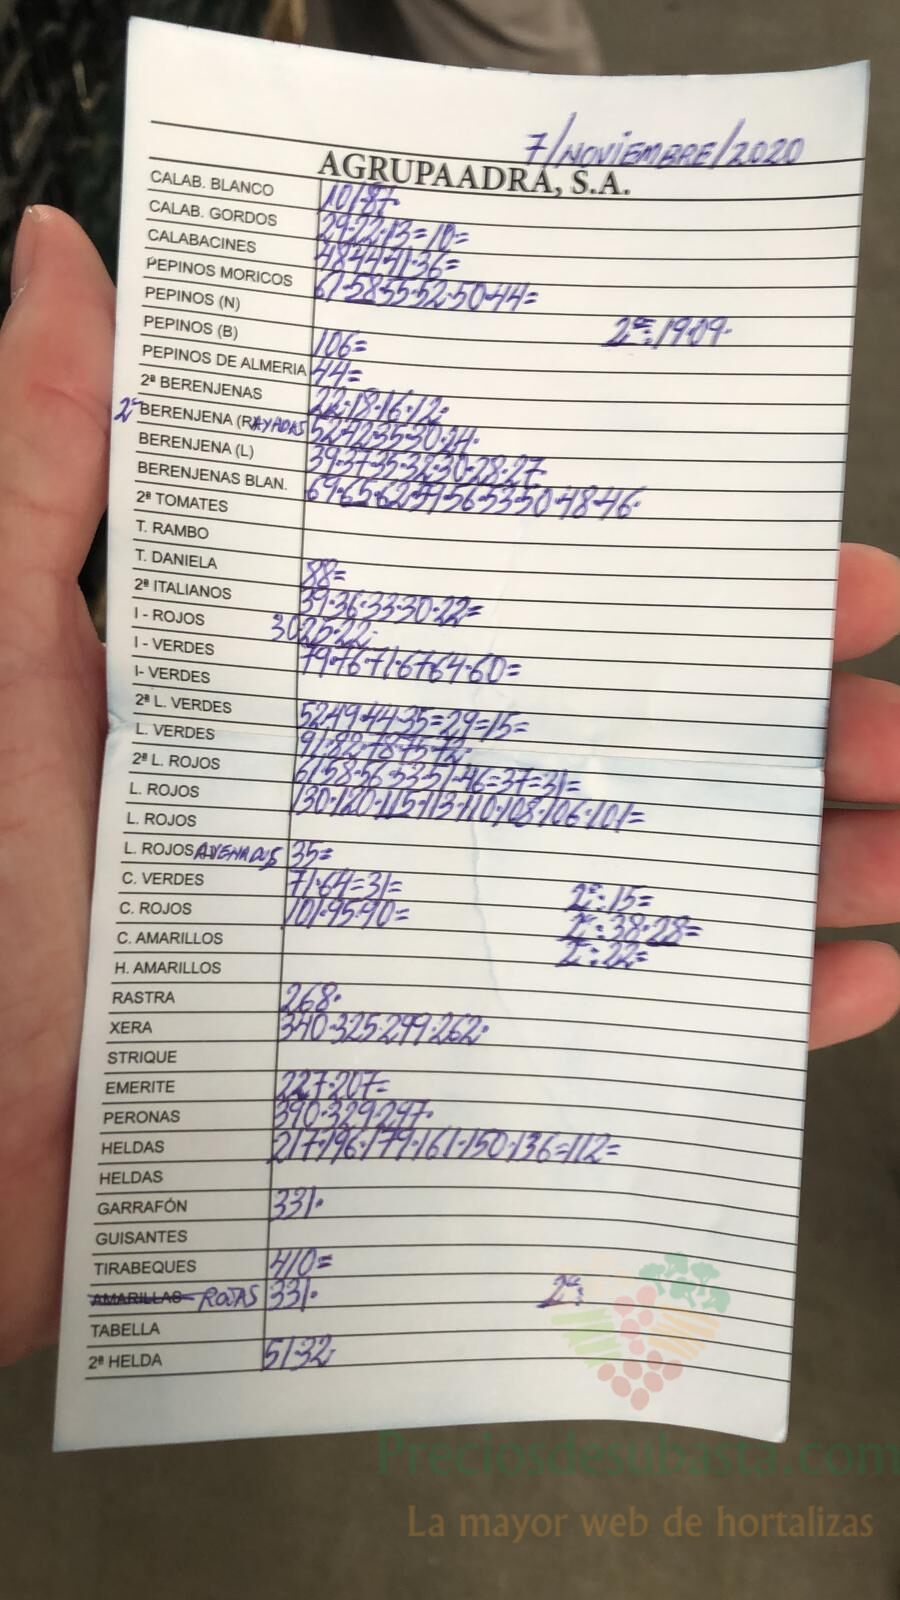 7/NOVIEMBRE/2020
AGRUPAADRA, S.A.
CALAB. BLANCO 101·87·
CALAB. GORDOS 29·22·13=10=
CALABACINES 48·44·41·36=
PEPINOS MORICOS 61·58·55·52·50·44=
PEPINOS (N) 2ª: 19·09·
PEPINOS (B) 106=
PEPINOS DE ALMERIA 44=
2ª BERENJENAS 22·18·16·12·
2ª BERENJENA (RAYADAS 52·42·35·30·24·
BERENJENA (L) 39·37·35·32·30·28·27·
BERENJENAS BLAN. 69·65·62·59·56·53·50·48·46·
2ª TOMATES
T. RAMBO
T. DANIELA 88=
2ª ITALIANOS 39·36·33·30·22=
I - ROJOS 30·25·22·
I - VERDES 79·76·71·67·64·60=
I- VERDES
2ª L. VERDES 52·49·44·35=29=15=
L. VERDES 91·82·78·75·72·
2ª L. ROJOS 61·58·56·53·51·46=37=31=
L. ROJOS 130·120·115·113·110·108·106·101=
L. ROJOS
L. ROJOS AVENADOS 35=
C. VERDES 71·64=31= 2ª: 15=
C. ROJOS 101·95·90= 2ª: 38·28=
C. AMARILLOS 2ª: 22=
H. AMARILLOS
RASTRA 268·
XERA 340·325·299·262·
STRIQUE
EMERITE 227·207=
PERONAS 390·329·297·
HELDAS 217·196·179·161·150·136=112=
HELDAS
GARRAFÓN 331·
GUISANTES
TIRABEQUES 410=
AMARILLAS ROJAS 331· 2ª:
TABELLA
2ª HELDA 51·32·
Preciosdesubasta.com
La mayor web de hortalizas